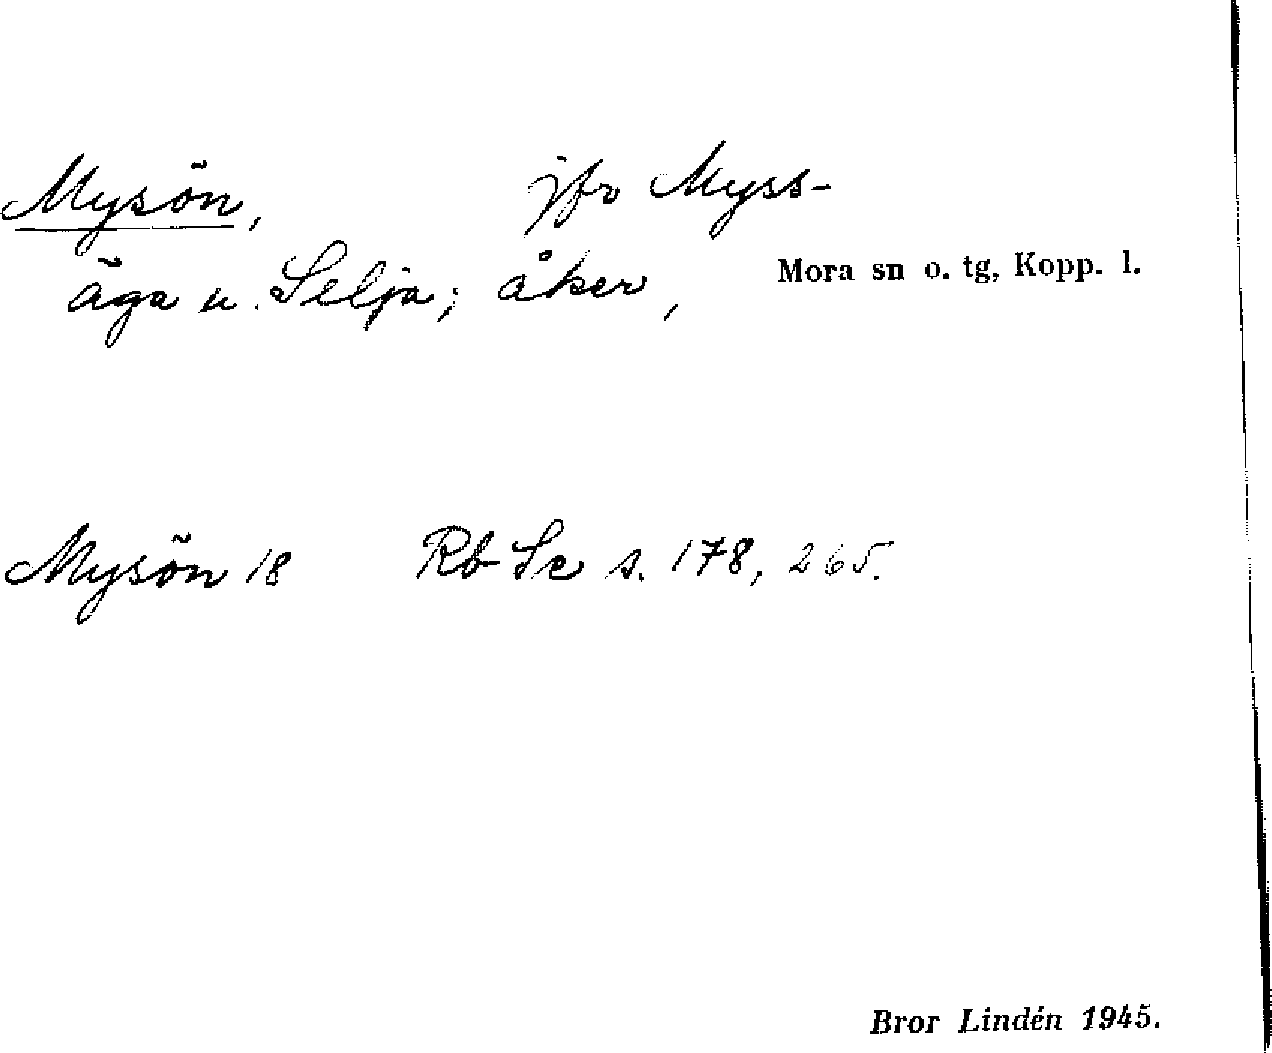 Mysön, jfr Myss-
äga u. Selja; åker, Mora sn o. tg, Kopp. l.
Mysön 18 Rb Se s. 178, 265.
Bror Lindén 1945.